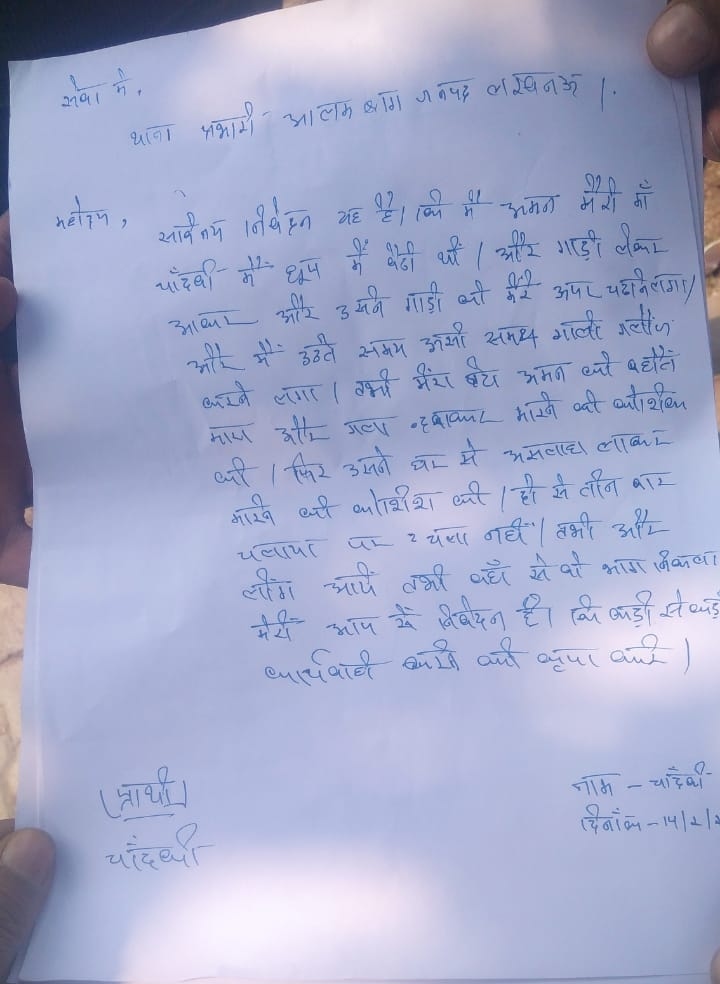 सेवा में,
थाना प्रभारी आलम बाग जनपद लखनऊ ।
महोदय,
सविनय निवेदन यह है। कि मैं अमन मेरी माँ
चाँदवी मैं धूप में बैठी थी । और गाड़ी लेकर
आकर और उसने गाड़ी को मेरे ऊपर चढ़ाने लगा ।
और मैं उठते समय उसी समक्ष गाली गलौज
करने लगा । तभी मेरा बेटा अमन को
मारा और गला दबाकर मारने की कोशिश
की । फिर उसने घर से असलाह लाकर
मारने की कोशिश की । दो से तीन बार
चलाया पर चला नहीं । तभी और
लोग आये तभी वहाँ से वो भाग निकला
मेरी आप से निवेदन है। कि कड़ी से कड़ी
कार्यवाही करने की कृपा करे ।
(प्रार्थी)
चाँदवी
नाम - चाँदवी
दिनाँक - 14/2/2